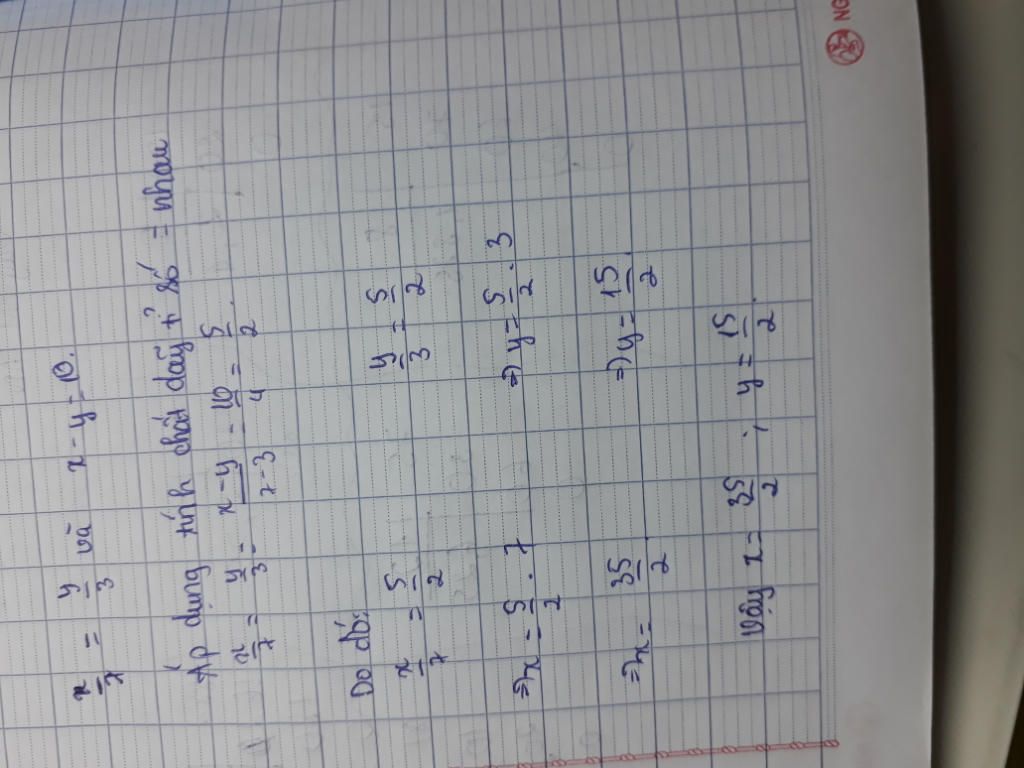 x/7 = y/3 và x - y = 10.
Áp dụng tính chất dãy tỉ số = nhau
x/7 = y/3 = x-y/7-3 = 10/4 = 5/2.
Do đó:
x/7 = 5/2 y/3 = 5/2
=> x = 5/2 . 7 => y = 5/2 . 3
=> x = 35/2 => y = 15/2.
Vậy x = 35/2 ; y = 15/2.
NG